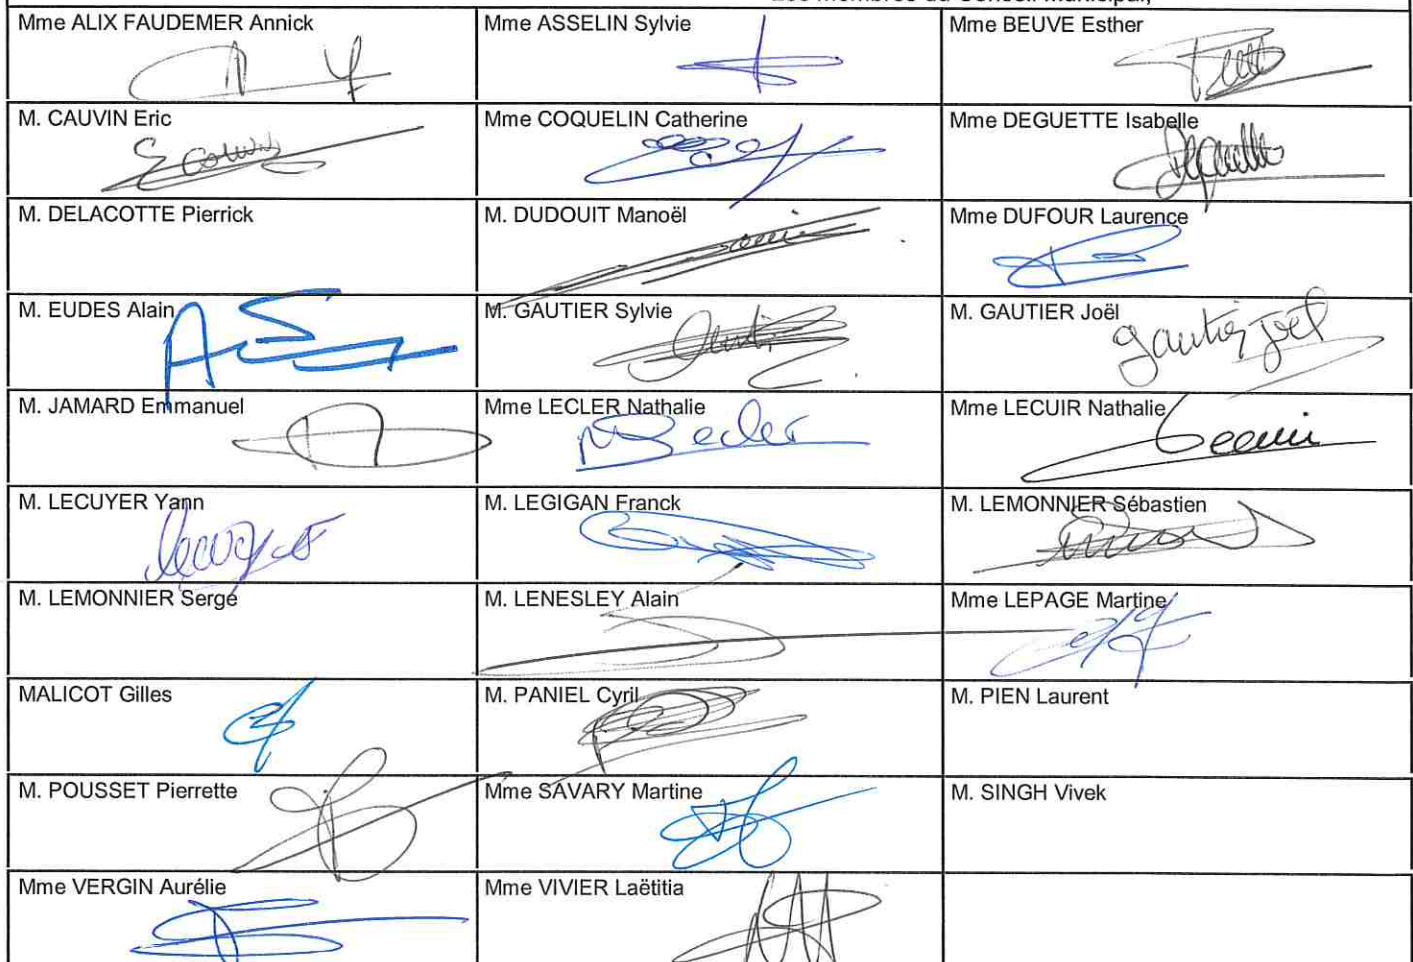 Les membres du Conseil Municipal,
Mme ALIX FAUDEMER Annick
Mme ASSELIN Sylvie
Mme BEUVE Esther
M. CAUVIN Eric
Mme COQUELIN Catherine
Mme DEGUETTE Isabelle
M. DELACOTTE Pierrick
M. DUDOUIT Manoël
Mme DUFOUR Laurence
M. EUDES Alain
M. GAUTIER Sylvie
M. GAUTIER Joël
gautier joël
M. JAMARD Emmanuel
Mme LECLER Nathalie
Mme LECUIR Nathalie
M. LECUYER Yann
M. LEGIGAN Franck
M. LEMONNIER Sébastien
M. LEMONNIER Serge
M. LENESLEY Alain
Mme LEPAGE Martine
MALICOT Gilles
M. PANIEL Cyril
M. PIEN Laurent
M. POUSSET Pierrette
Mme SAVARY Martine
M. SINGH Vivek
Mme VERGIN Aurélie
Mme VIVIER Laëtitia